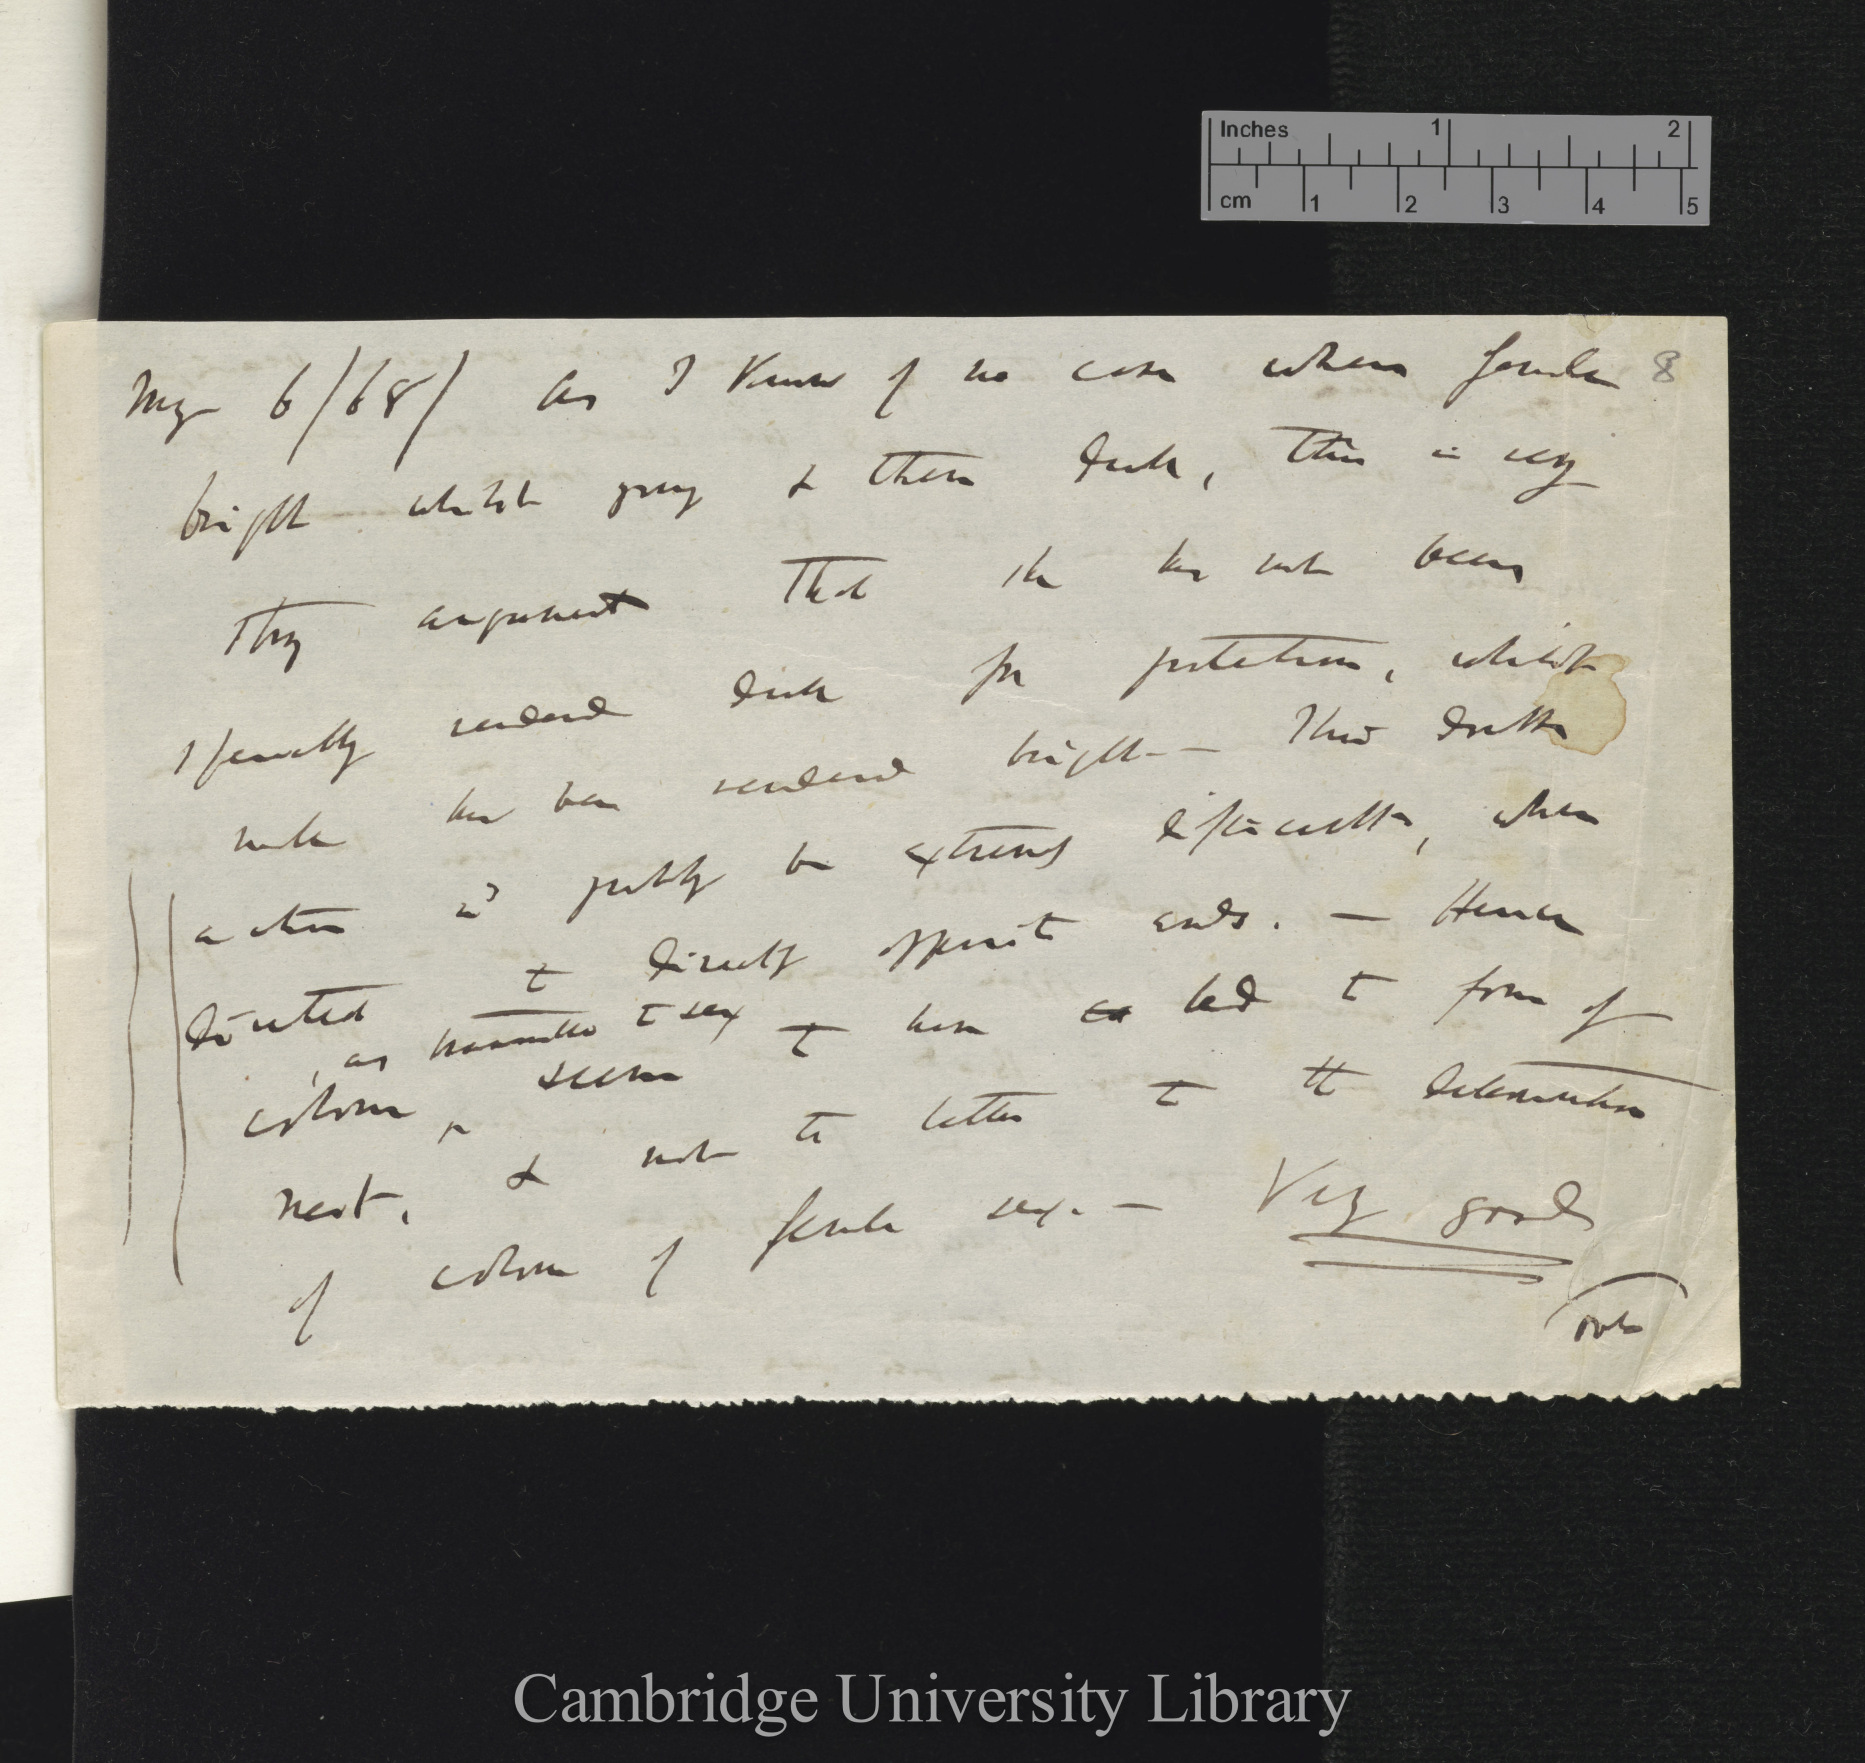 Inches 1 2
cm 1 2 3 4 5
May 6/68/ As I know of no case where female 8
bright whilst young & then dark, this is very
strong argument that she has not been
specially rendered dark for protection, whilst
male has been rendered bright — This double
action wd probably be extremely difficult, when
directed to directly opposite ends. — Hence
, as transmitted to sex
colour, seems to have led to form of
nest, & not the latter to the determination
of colour of female sex. — Very good
over
Cambridge University Library